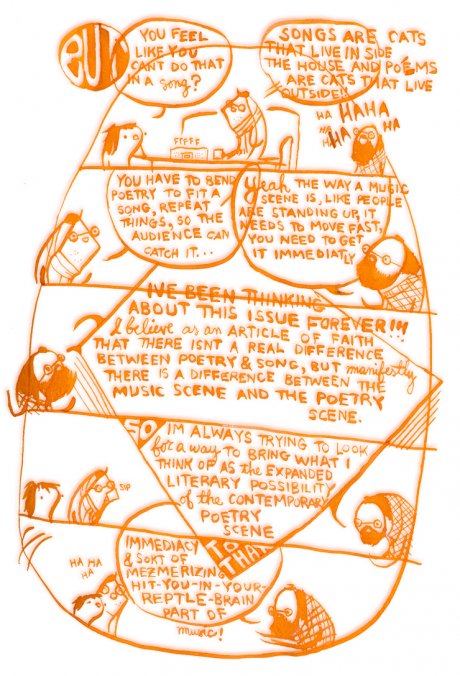 YOU FEEL
LIKE YOU
CANT DO THAT
IN A song?
SONGS ARE CATS
THAT LIVE IN SIDE
THE HOUSE AND POEMS
ARE CATS THAT LIVE
OUTSIDE!!
FFFFF
HA HAHA
HA HA HA
YOU HAVE TO BEND
POETRY TO FIT A
SONG, REPEAT
THINGS, SO THE
AUDIENCE CAN
CATCH IT...
Yeah THE WAY A MUSIC
SCENE IS, LIKE PEOPLE
ARE STANDING UP, IT
NEEDS TO MOVE FAST,
YOU NEED TO GET
IT IMMEDIATLY
IVE BEEN THINKING
ABOUT THIS ISSUE FOREVER!!!
I believe as an ARTICLE OF FAITH
THAT THERE ISNT A REAL DIFFERENCE
BETWEEN POETRY & SONG, BUT manifestly
THERE IS A DIFFERENCE BETWEEN THE
MUSIC SCENE AND THE POETRY
SCENE.
SO
IM ALWAYS TRYING TO LOOK
for a way TO BRING WHAT I
THINK OF AS the EXPANDED
LITERARY POSSIBILITY
of the CONTEMPORARY
POETRY
SCENE
SIP
TO THAT
IMMEDIACY
& SORT OF
MEZMERIZING
HIT-YOU-IN-YOUR-
REPTLE-BRAIN
PART OF
music!
HA HA
HA